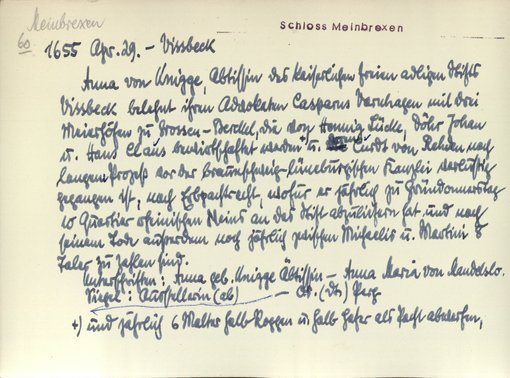 Meinbrexen
60
Schloss Meinbrexen
1655 Apr. 29. - Vissbeck
Anna von Knigge, Äbtissin des kaiserlichen freien adligen Stifts
Vissbeck belehnt ihren Advokaten Casparus Varchagen mit drei
Meierhöfen zu Grossen-Berckel, die von Hennig Lücke, Döhr Johan
u. Hans Claus bewirtschaftet werden +) u. Curdt von Rehen nach
langem Prozess vor der braunschweig-lüneburgischen Kanzlei verlustig
gegangen ist, nach Erbpachtrecht, wofür er jährlich zu Gründonnerstag
10 Quartier rheinischen Weins an das Stift abzuliefern hat und nach
seinem Tode ausserdem noch jährlich zwischen Michaelis u. Martini 8
Taler zu zahlen sind.
Unterschriften: Anna geb. Knigge Äbtissin - Anna Maria von Mandelslo.
Siegel: Ausstellerin (ab) - Or. (dt) Perg
+) und jährlich 6 Malter halb Roggen u. halb Hafer als Pacht abwerfen,